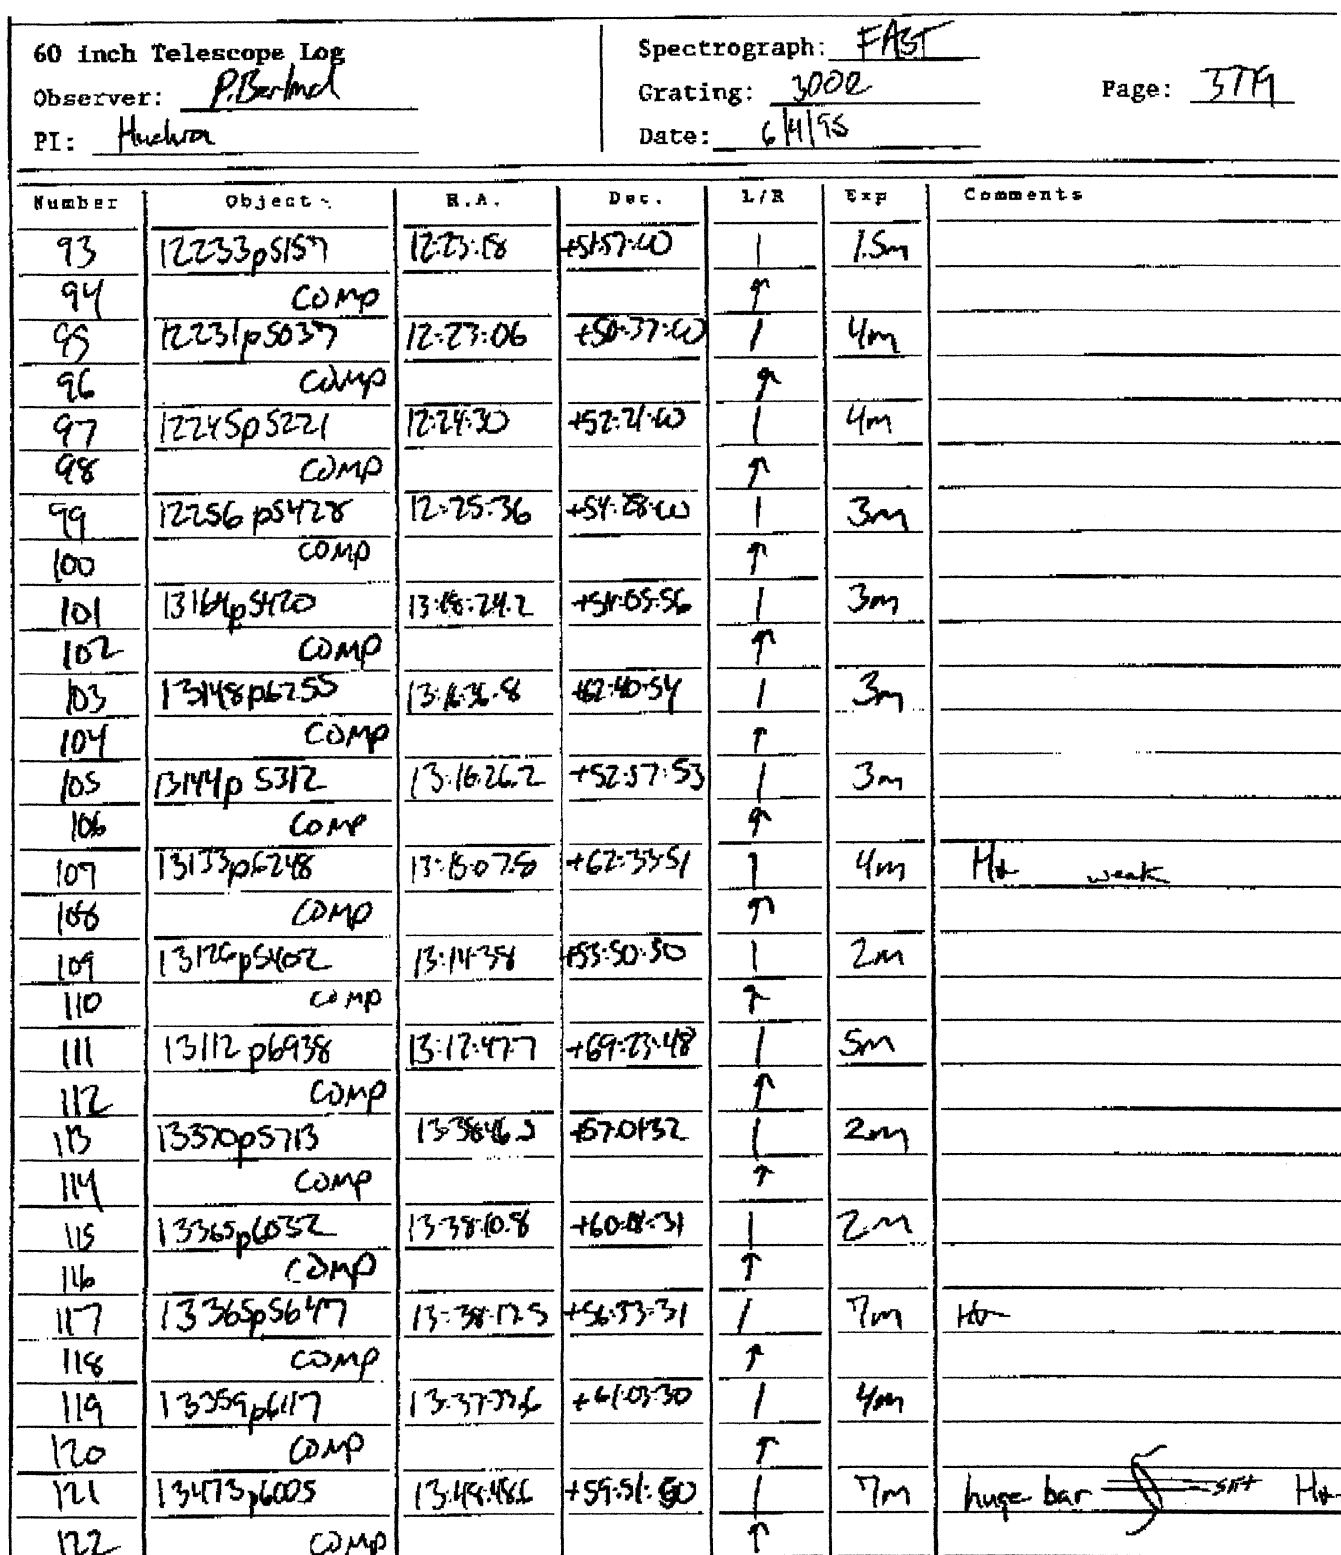 60 inch Telescope Log
Observer: P. Berlind
PI: Huchra
Spectrograph: FAST
Grating: 300l
Date: 6/4/95
Page:
Number Object R.A. Dec. L/R Exp Comments
93 12233p5157 12:23:18 +51:57:00 1 1.5m
94 COMP ↑
95 12231p5037 12:23:06 +50:37:00 1 4m
96 COMP ↑
97 12245p5221 12:24:30 +52:21:00 1 4m
98 COMP ↑
99 12256p5428 12:25:36 +54:28:00 1 3m
100 COMP ↑
101 13164p5420 13:18:24.2 +54:05:56 1 3m
102 COMP ↑
103 13148p6255 13:16:36.8 +62:40:54 1 3m
104 COMP ↑
105 13144p5312 13:16:26.2 +52:57:53 1 3m
106 COMP ↑
107 13133p6248 13:15:07.8 +62:33:51 1 4m Hα weak
108 COMP ↑
109 13126p5402 13:14:38 +53:50:30 1 2m
110 COMP ↑
111 13112p6938 13:12:47.7 +69:23:48 1 5m
112 COMP ↑
113 13370p5713 1 2m
114 COMP ↑
115 13365p6032 13:38:10.8 +60:18:31 1 2m
116 COMP ↑
117 13365p5647 13:38:17.5 +56:33:31 1 7m Hα
118 COMP ↑
119 13359p6117 13:37:33.6 +61:03:30 1 4m
120 COMP ↑
121 13473p6005 13:49:48.6 1 7m huge bar slit Hα
122 COMP ↑